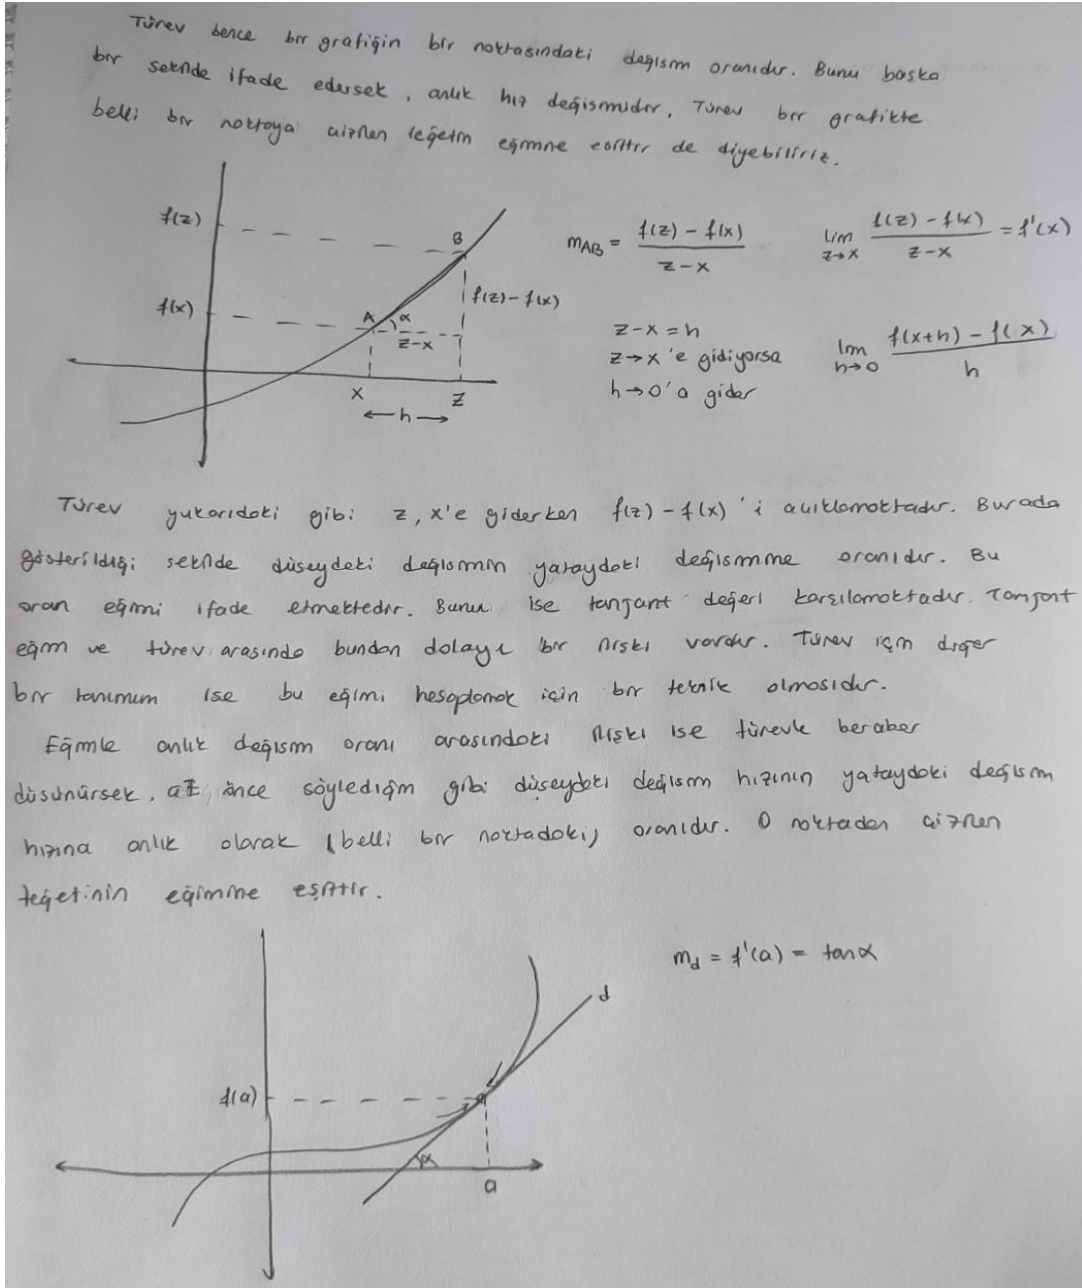 Türev bence bir grafiğin bir noktasındaki değişim oranıdır. Bunu başka
bir şekilde ifade edersek, anlık hız değişimidir. Türev bir grafikte
belli bir noktaya çizilen teğetin eğimine eşittir de diyebiliriz.
f(z)
B
m_AB = f(z) - f(x) / z-x
lim z→x f(z) - f(x) / z-x = f'(x)
f(x)
A α
f(z)-f(x)
z-x
z-x = h
z→x 'e gidiyorsa
h→0'a gider
lim h→0 f(x+h) - f(x) / h
x z
←h→
Türev yukarıdaki gibi z, x'e giderken f(z) - f(x) 'i açıklamaktadır. Burada
gösterildiği şekilde düşeydeki değişimin yataydaki değişimine oranıdır. Bu
oran eğimi ifade etmektedir. Bunu ise tanjant değeri karşılamaktadır. Tanjant
eğim ve türev arasında bundan dolayı bir ilişki vardır. Türev için diğer
bir tanımım ise bu eğimi hesaplamak için bir teknik olmasıdır.
Eğimle anlık değişim oranı arasındaki ilişki ise türevle beraber
düşünürsek, az önce söylediğim gibi düşeydeki değişim hızının yataydaki değişim
hızına anlık olarak (belli bir noktadaki) oranıdır. O noktadan çizilen
teğetinin eğimine eşittir.
m_d = f'(a) = tanα
d
f(a)
α
a